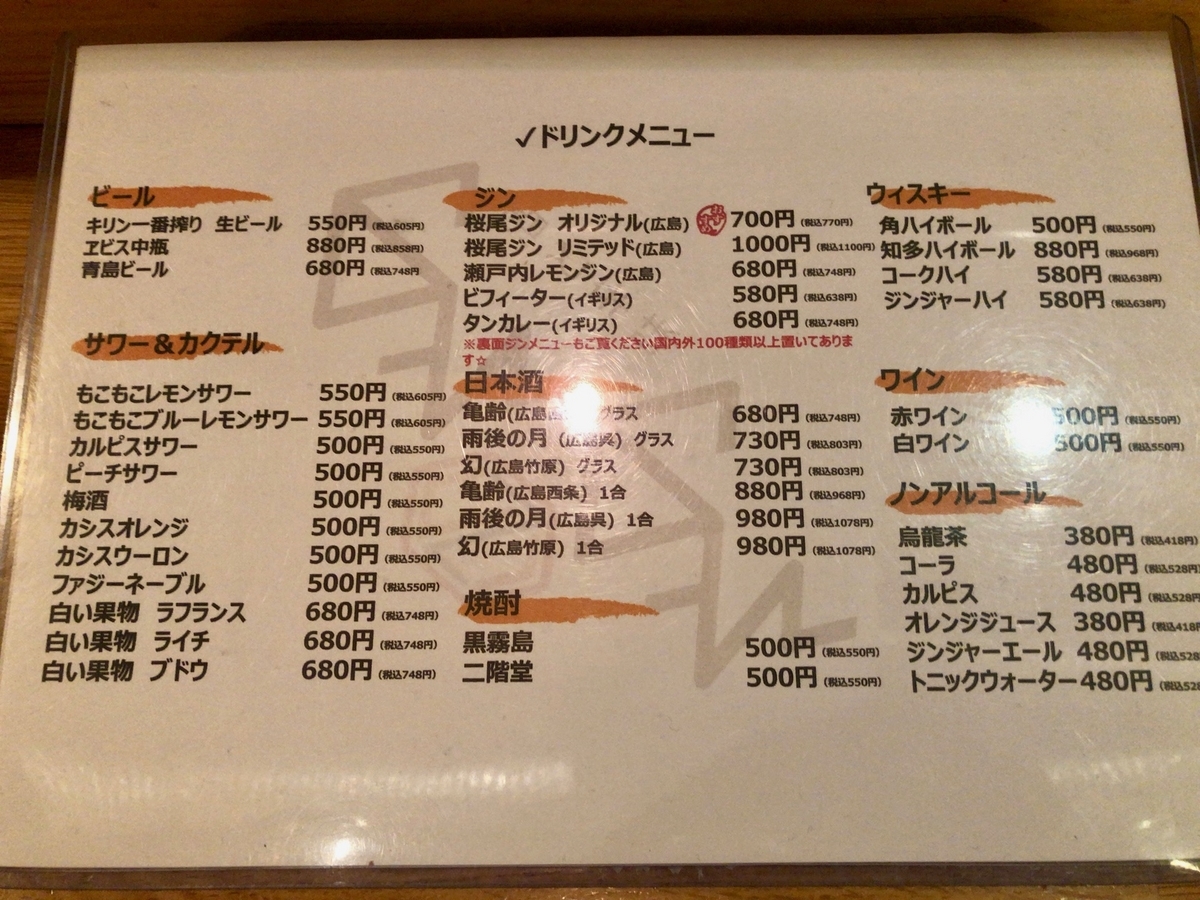 ✓ドリンクメニュー
ビール
キリン一番搾り 生ビール 550円(税込605円)
ヱビス中瓶 880円(税込858円)
青島ビール 680円(税込748円
サワー＆カクテル
もこもこレモンサワー 550円(税込605円)
もこもこブルーレモンサワー 550円(税込605円)
カルピスサワー 500円(税込550円)
ピーチサワー 500円(税込550円)
梅酒 500円(税込550円)
カシスオレンジ 500円(税込550円)
カシスウーロン 500円(税込550円)
ファジーネーブル 500円(税込550円)
白い果物 ラフランス 680円(税込748円)
白い果物 ライチ 680円(税込748円)
白い果物 ブドウ 680円(税込748円)
ジン
桜尾ジン オリジナル(広島) 700円(税込770円)
桜尾ジン リミテッド(広島) 1000円(税込1100円)
瀬戸内レモンジン(広島) 680円(税込748円)
ビフィーター(イギリス) 580円(税込638円)
タンカレー(イギリス) 680円(税込748円)
※裏面ジンメニューもご覧ください国内外100種類以上置いてありま
す☆
日本酒
亀齢(広島西 グラス 680円(税込748円)
雨後の月 (広島呉) グラス 730円(税込803円)
幻(広島竹原) グラス 730円(税込803円)
亀齢(広島西条) 1合 880円(税込968円)
雨後の月(広島呉) 1合 980円(税込1078円)
幻(広島竹原) 1合 980円(税込1078円)
焼酎
黒霧島 500円(税込550円)
二階堂 500円(税込550円)
ウィスキー
角ハイボール 500円(税込550円)
知多ハイボール 880円(税込968円)
コークハイ 580円(税込638円)
ジンジャーハイ 580円(税込638円)
ワイン
赤ワイン 500円(税込550円)
白ワイン 500円(税込550円)
ノンアルコール
烏龍茶 380円(税込418円)
コーラ 480円(税込528円
カルピス 480円(税込528円
オレンジジュース 380円(税込418円
ジンジャーエール 480円(税込528
トニックウォーター480円(税込528